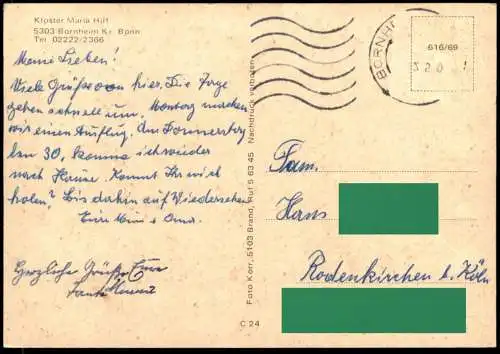 Kloster Maria Hilf
5303 Bornheim Kr. Bonn
Tel. 02222/2366
Meine Lieben!
Viele Grüße von hier. Die Tage
gehen schnell um. Montag machen
wir einen Ausflug. Am Donnerstag
den 30. komme ich wieder
nach Hause. Könnt Ihr mich
holen? Bis dahin auf Wiedersehen
Eure Mimi u. Oma.
Herzliche Grüße Eure
Tante
Foto Korr, 5103 Brand, Ruf 5 63 45 Nachdruck verboten
C 24
BORNH
616/69
Fam.
Hans
Rodenkirchen b. Köln